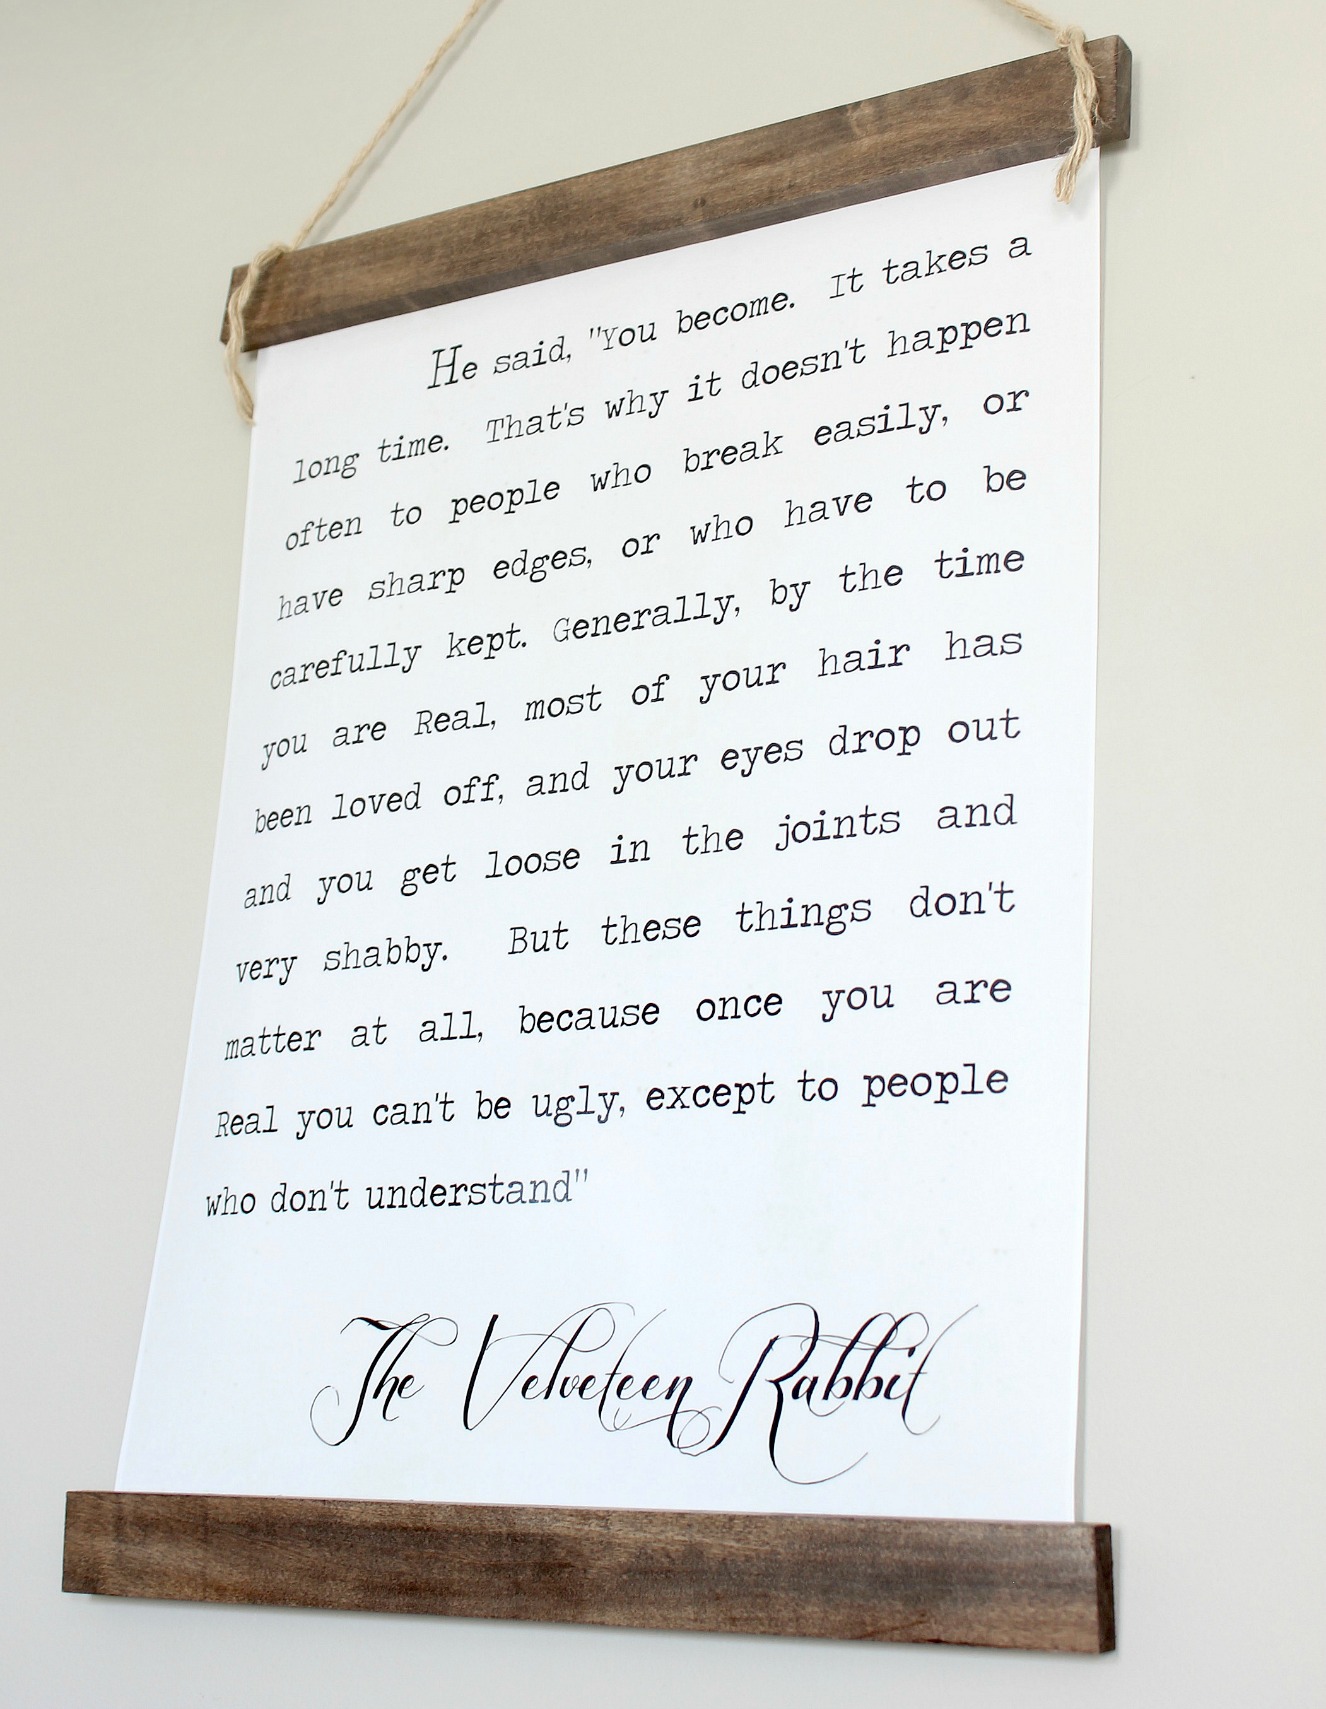 He said, "You become. It takes a
long time. That's why it doesn't happen
often to people who break easily, or
have sharp edges, or who have to be
carefully kept. Generally, by the time
you are Real, most of your hair has
been loved off, and your eyes drop out
and you get loose in the joints and
very shabby. But these things don't
matter at all, because once you are
Real you can't be ugly, except to people
who don't understand"
The Velveteen Rabbit